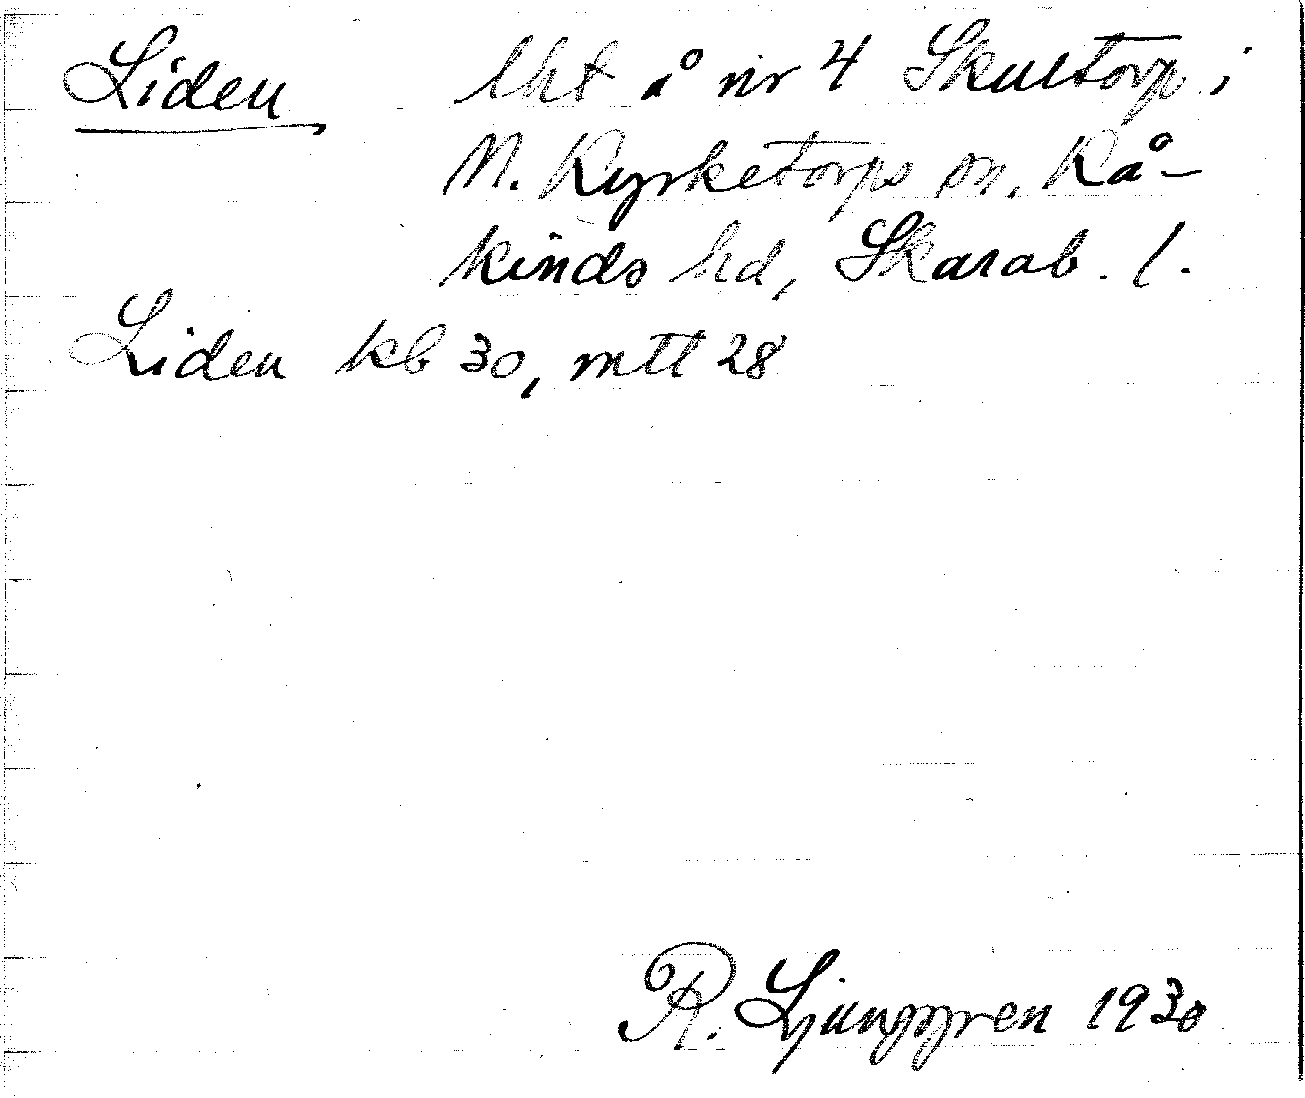 Liden lht å nr 4 Skultorp i
N. Kyrketorps sn. Kå-
kinds hd, Skarab. l.
Liden kb 30, mtl 28
R. Ljunggren 1930